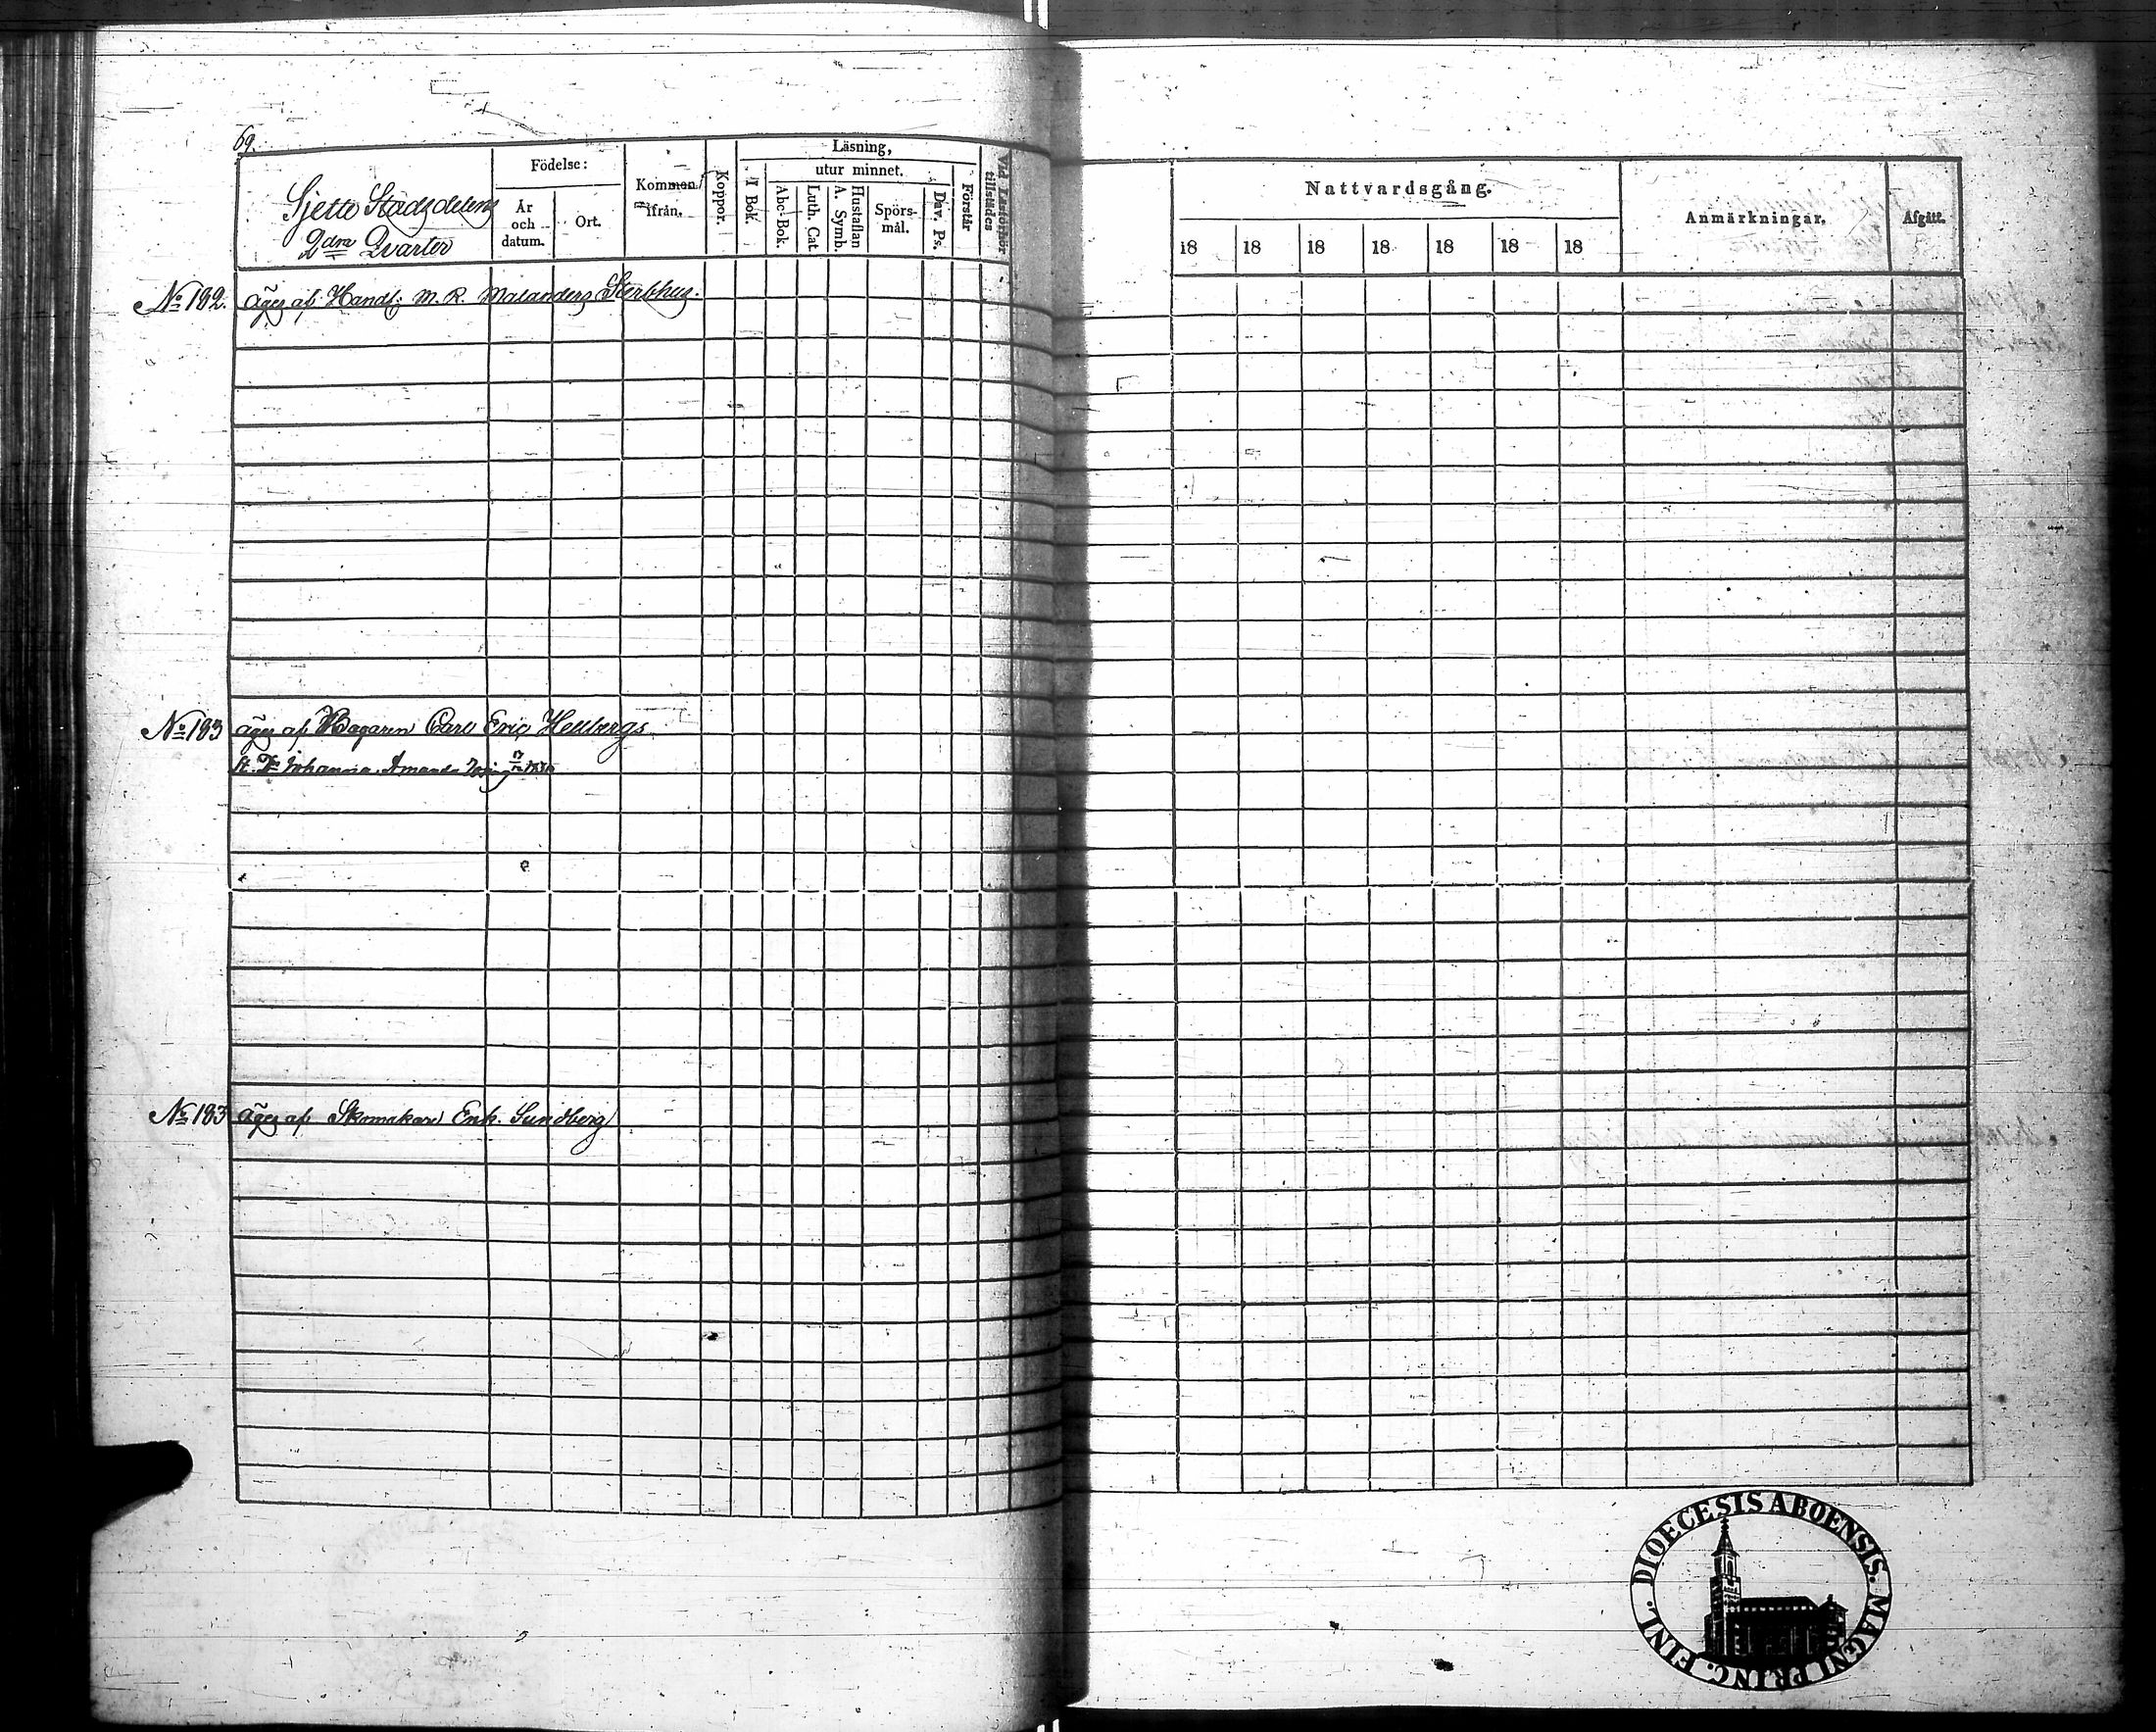 69.
Sjette Stadsdelens
2dra Qvarter
Födelse:
År och datum.
Ort.
Kommen ifrån.
Koppor.
Läsning,
I Bok.
utur minnet.
Abc-Bok.
Luth. Cat.
A. Symb.
Hustaflan
Spörsmål.
Dav. Ps.
Förstår
Vid Läsförhör tillstädes
Nattvardsgång.
18 18 18 18 18 18 18
Anmärkningar.
Afgått.
No 182. äges af Handl: M. R. Malanders Sterbhus.
No 183 äges af Bagaren Carl Eric Hellbergs
Johanna Amanda
No 183 äges af Skomakare Enk. Sundberg
DIOECESIS ABOENSIS. MAGNI PRINC. FINL.